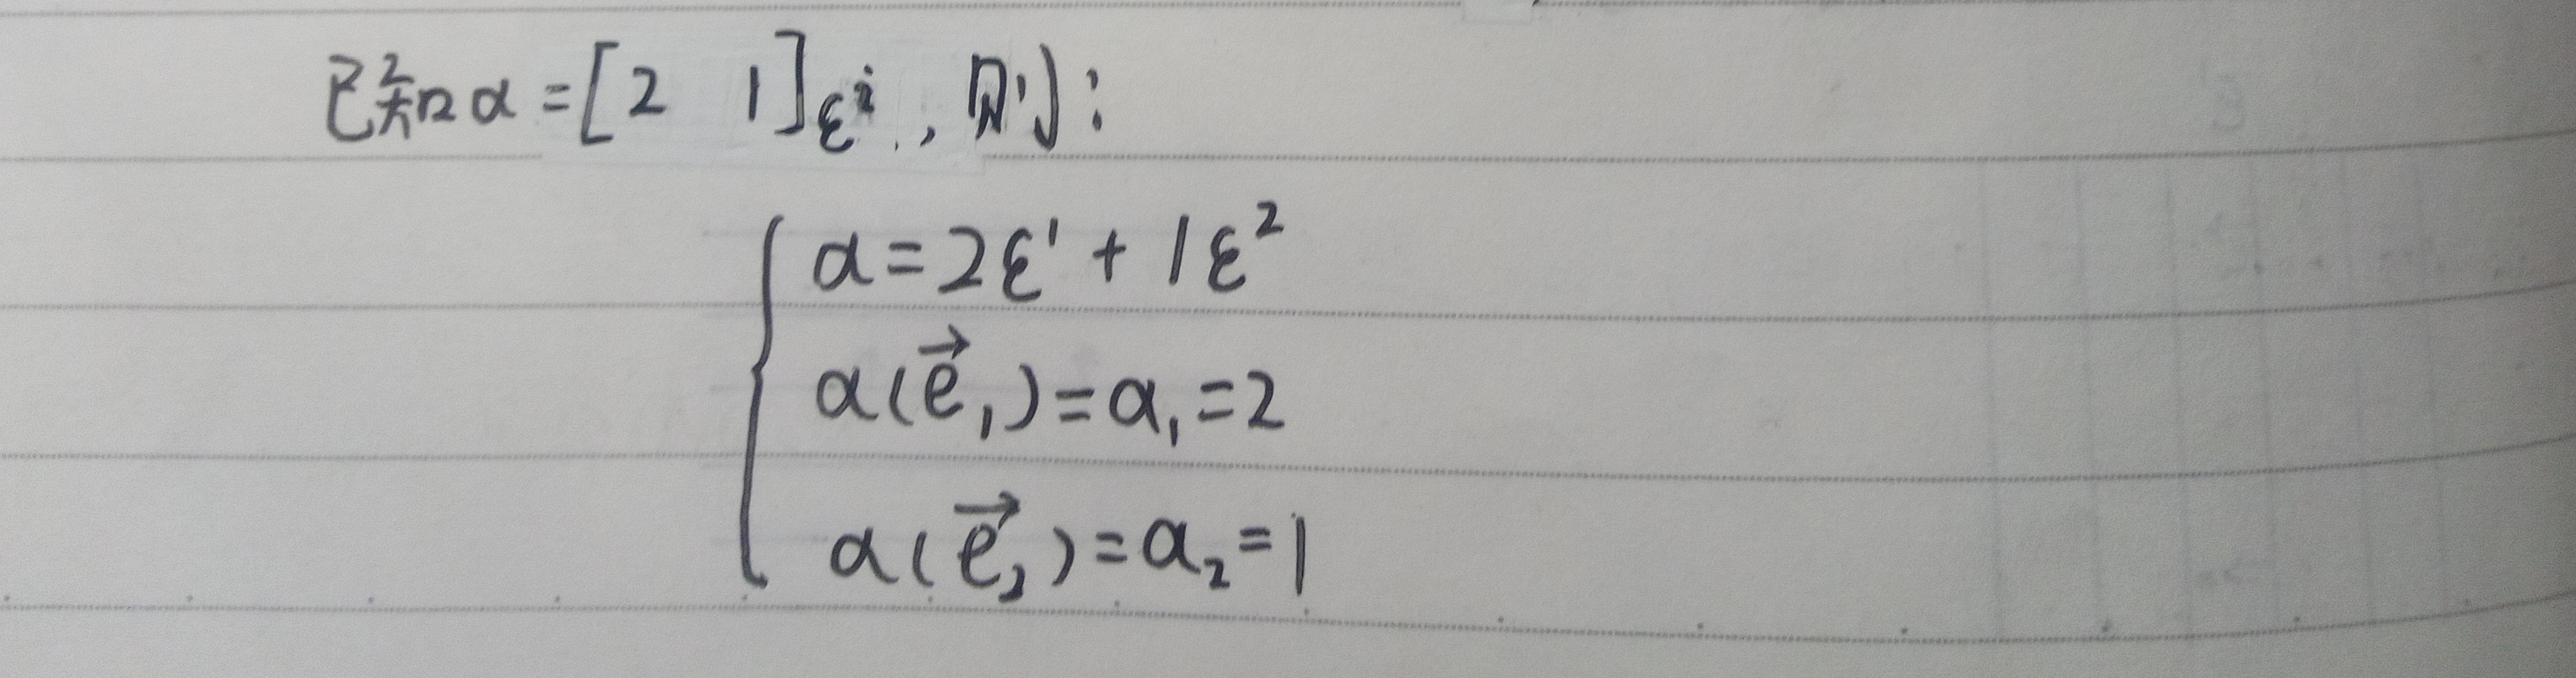 已知α=[2 1]_{ε^i}, 则:
α=2ε^1+1ε^2
α(\vec{e}_1)=α_1=2
α(\vec{e}_2)=α_2=1